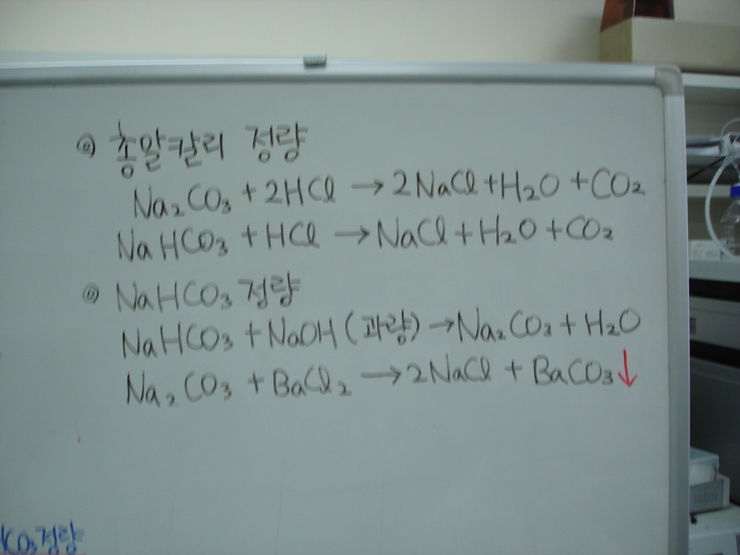 ◎ 총알칼리 정량
Na₂CO₃ + 2HCl → 2NaCl + H₂O + CO₂
NaHCO₃ + HCl → NaCl + H₂O + CO₂
◎ NaHCO₃ 정량
NaHCO₃ + NaOH (과량) → Na₂CO₃ + H₂O
Na₂CO₃ + BaCl₂ → 2NaCl + BaCO₃↓
CO₃정량